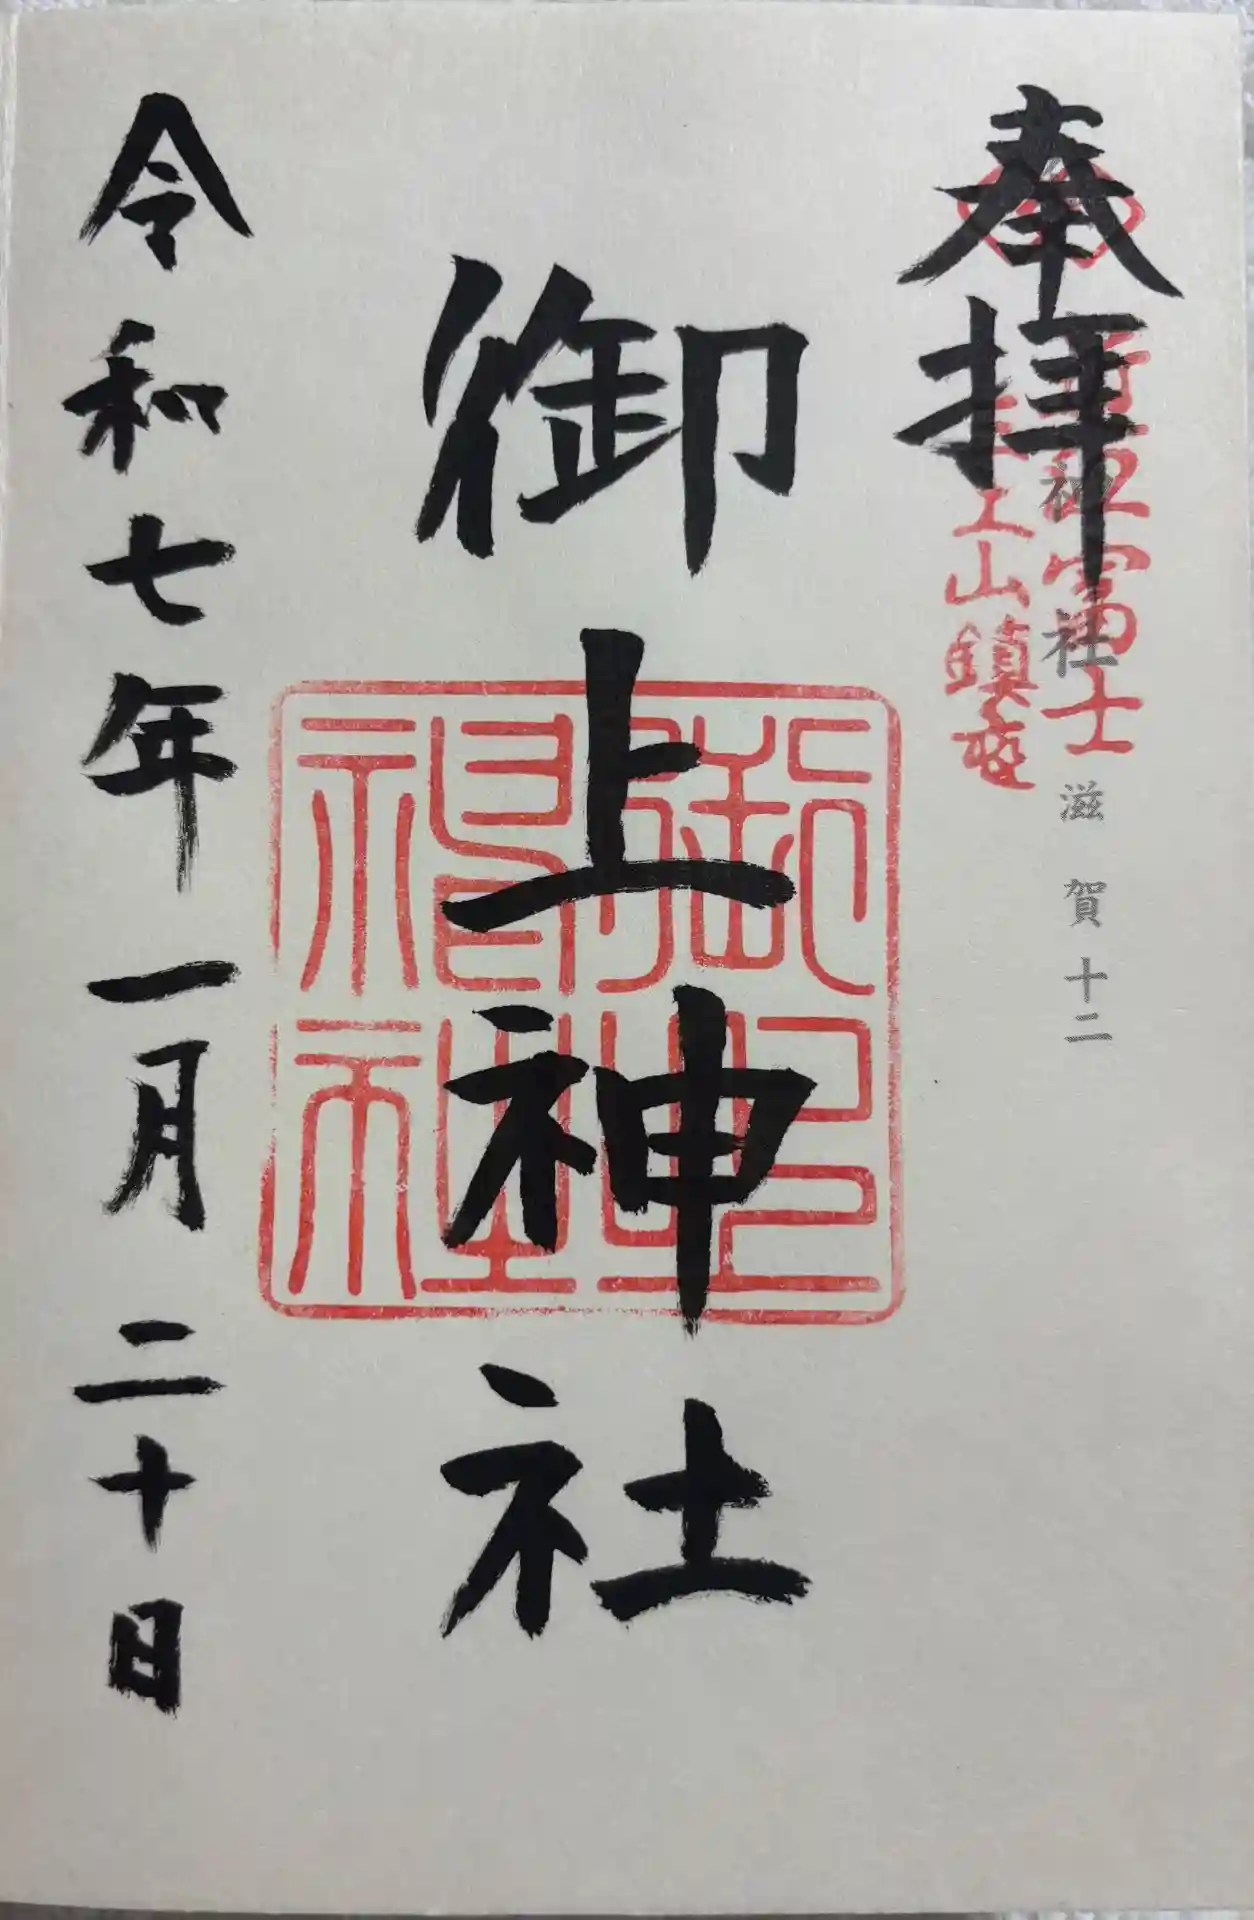 奉拝
神社 滋賀十二
富士
上山鎮座
御上神社
令和七年一月二十日